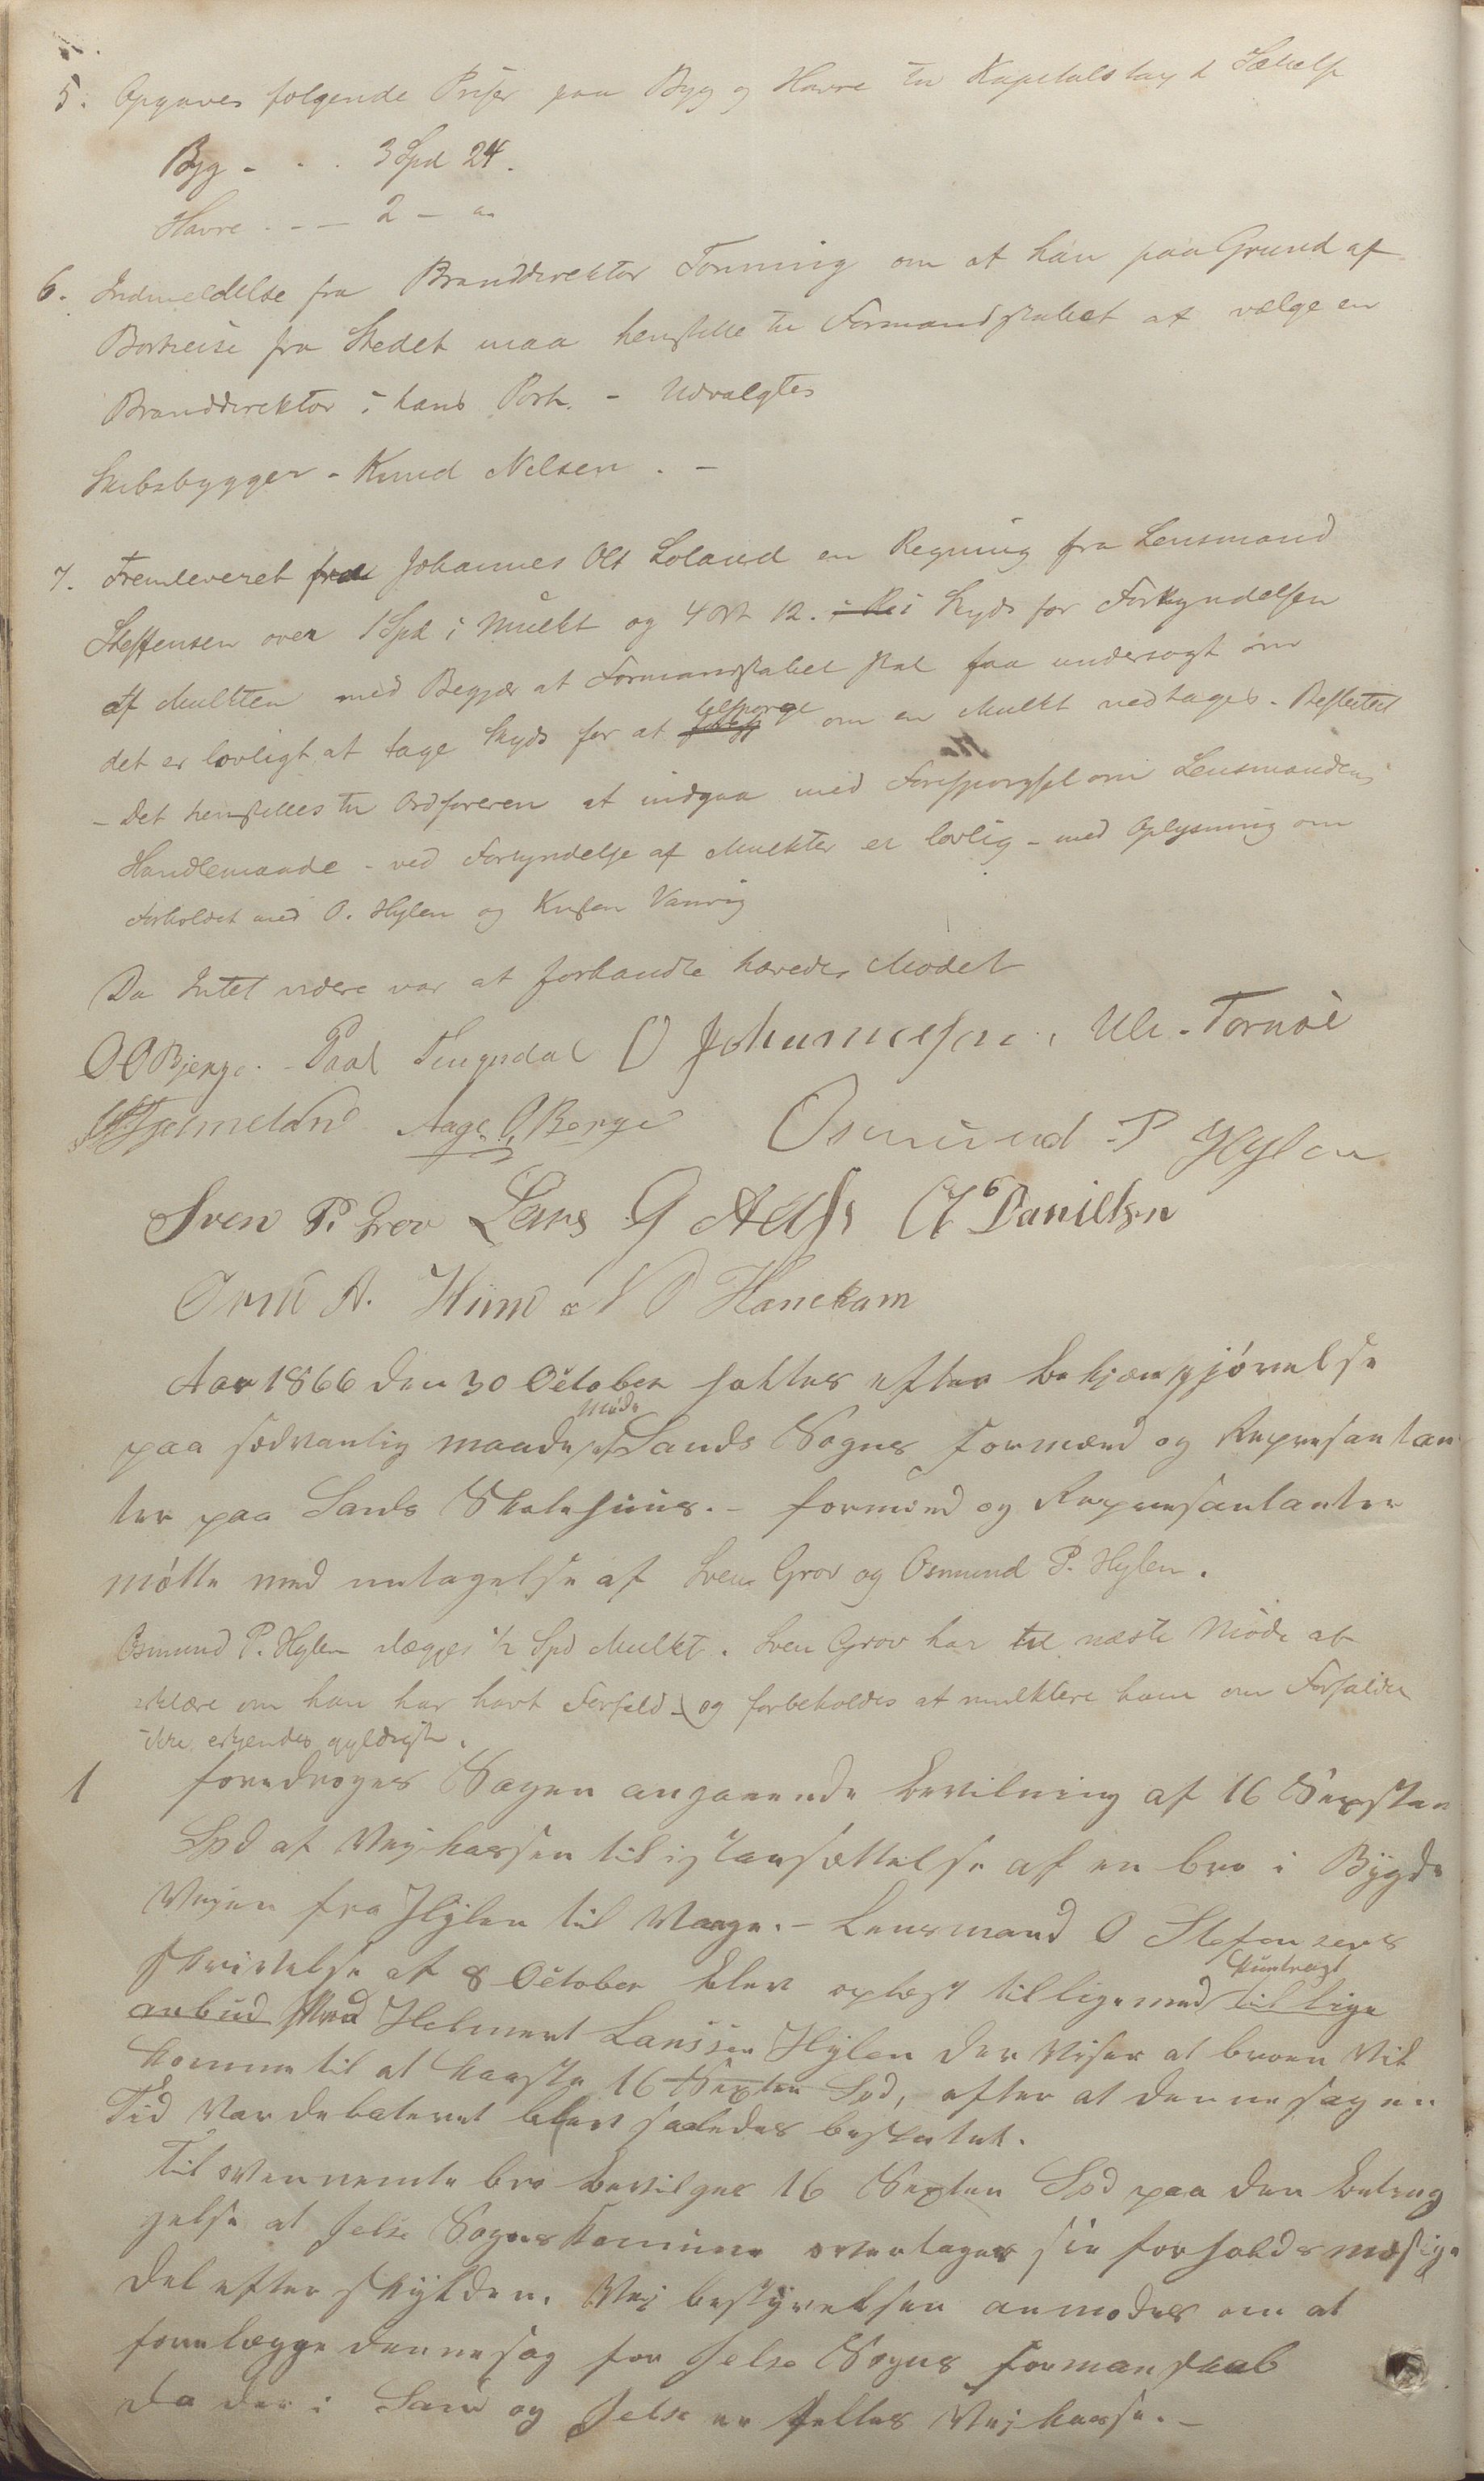 5. Opgaves følgende Priser paa Byg og Havre til Kapitelstaxt
Byg - . . 3 Spd 24.
Havre . - - 2 - "
6. Indmeldelse fra Branddirektør Tonning om at han paa Grund af
Bortreise fra Stedet maa henstille til Formandskabet at vælge en
Branddirektør i hans Sted. - Udvalgtes
Skibsbygger - Knud Nilsen . -
7. Fremleveret fra Johannes Ols Loland en Regning fra Lensmand
Steffensen over 1 Spd i Mulkt og 4 Ort 12. i Skyds for Forkyndelsen
af Mulkten med Begjær at Formandskabet skal faa undersøgt om
det er lovligt at tage Skyds for at tilspørge om en Mulkt vedtages.
- Det henstilles til Ordføreren at indgaa med Forespørgsel om Lensmandens
Handlemaade - ved Forkyndelse af Mulkter er lovlig - med Oplysning om
Forholdet med O. Hylen og Knut Vanvig
Da Intet videre var at forhandle hævedes Mødet
O O Bjerge. - Paal Tengesdal O Johannesen. Ulr. Tornøe
Hjelmeland Aage O Berge Osmund P Hylen
Sven P. Grov Lars G Danielsen
A. Hiim N O Hanekam
Aar 1866 den 30 October holttes efter bekjængjørelse
Møde
paa sædvanlig maade af Sands Sogns Formænd og Represantan
ter paa Sands Skolehuus. - formænd og Represantanter
møtte med untagelse af Sven Grov og Osmund P. Hylen.
Osmund P. Hylen ilægges 1/2 Spd Mulkt. Sven Grov har til næste Møde at
erklære om han har havt Forfald - og forbeholdes at mulktere ham om Forfaldet
ikke erkjendes gyldigt.
1 foredroges Sagen angaaende bevilning af 16 Sexsten
Spd af Vej kassen til istansættelse af en bro i Bygde
Vejen fra Hylen til Vaage. - Lensmand O Stefensens
Kuntragt
skrivelse af 8 October blev oplæst tilligemed til lige
anbud med Helmert Larssen Hylen der viser at broen vil
komme til at kaaste 16 Sexten Spd, efter at denne sag en
Tid var debateret blev saaledes besluttet.
Til ovennemte bro bevilges 16 Sexten Spd paa den beting
gelse at Jelse Sogns Komune overtager sin forholdsmæsige
del efter skylden. Vej bestyrelsen anmodes om at
forelægge denne sag for Jelse Sogns formanskab
da der i Sand og Jelse er felles Vej kasse. -